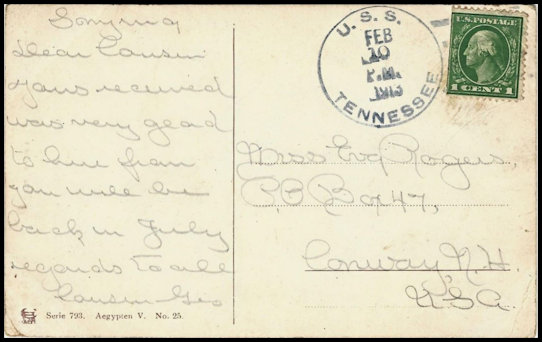 Smyrna
Dear Cousin
yours received
was very glad
to hear from
you will be
back in July
regards to all
Cousin Geo
Serie 793. Aegypten V. No. 25.
U. S. S.
FEB
10
P.M.
1913
TENNESSEE
U.S. POSTAGE
1 CENT 1
Miss Eva Rogers,
P.O Box 47,
Conway N.H.
U.S.A.